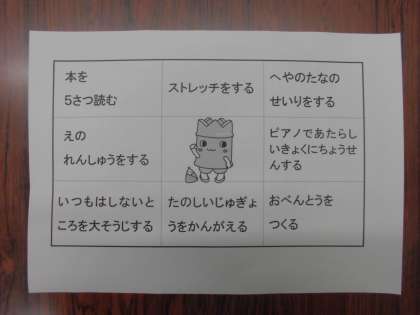 本を
5さつ読む
ストレッチをする
へやのたなの
せいりをする
えの
れんしゅうをする
ピアノであたらし
いきょくにちょうせ
んする
いつもはしないと
ころを大そうじする
たのしいじゅぎょ
うをかんがえる
おべんとうを
つくる